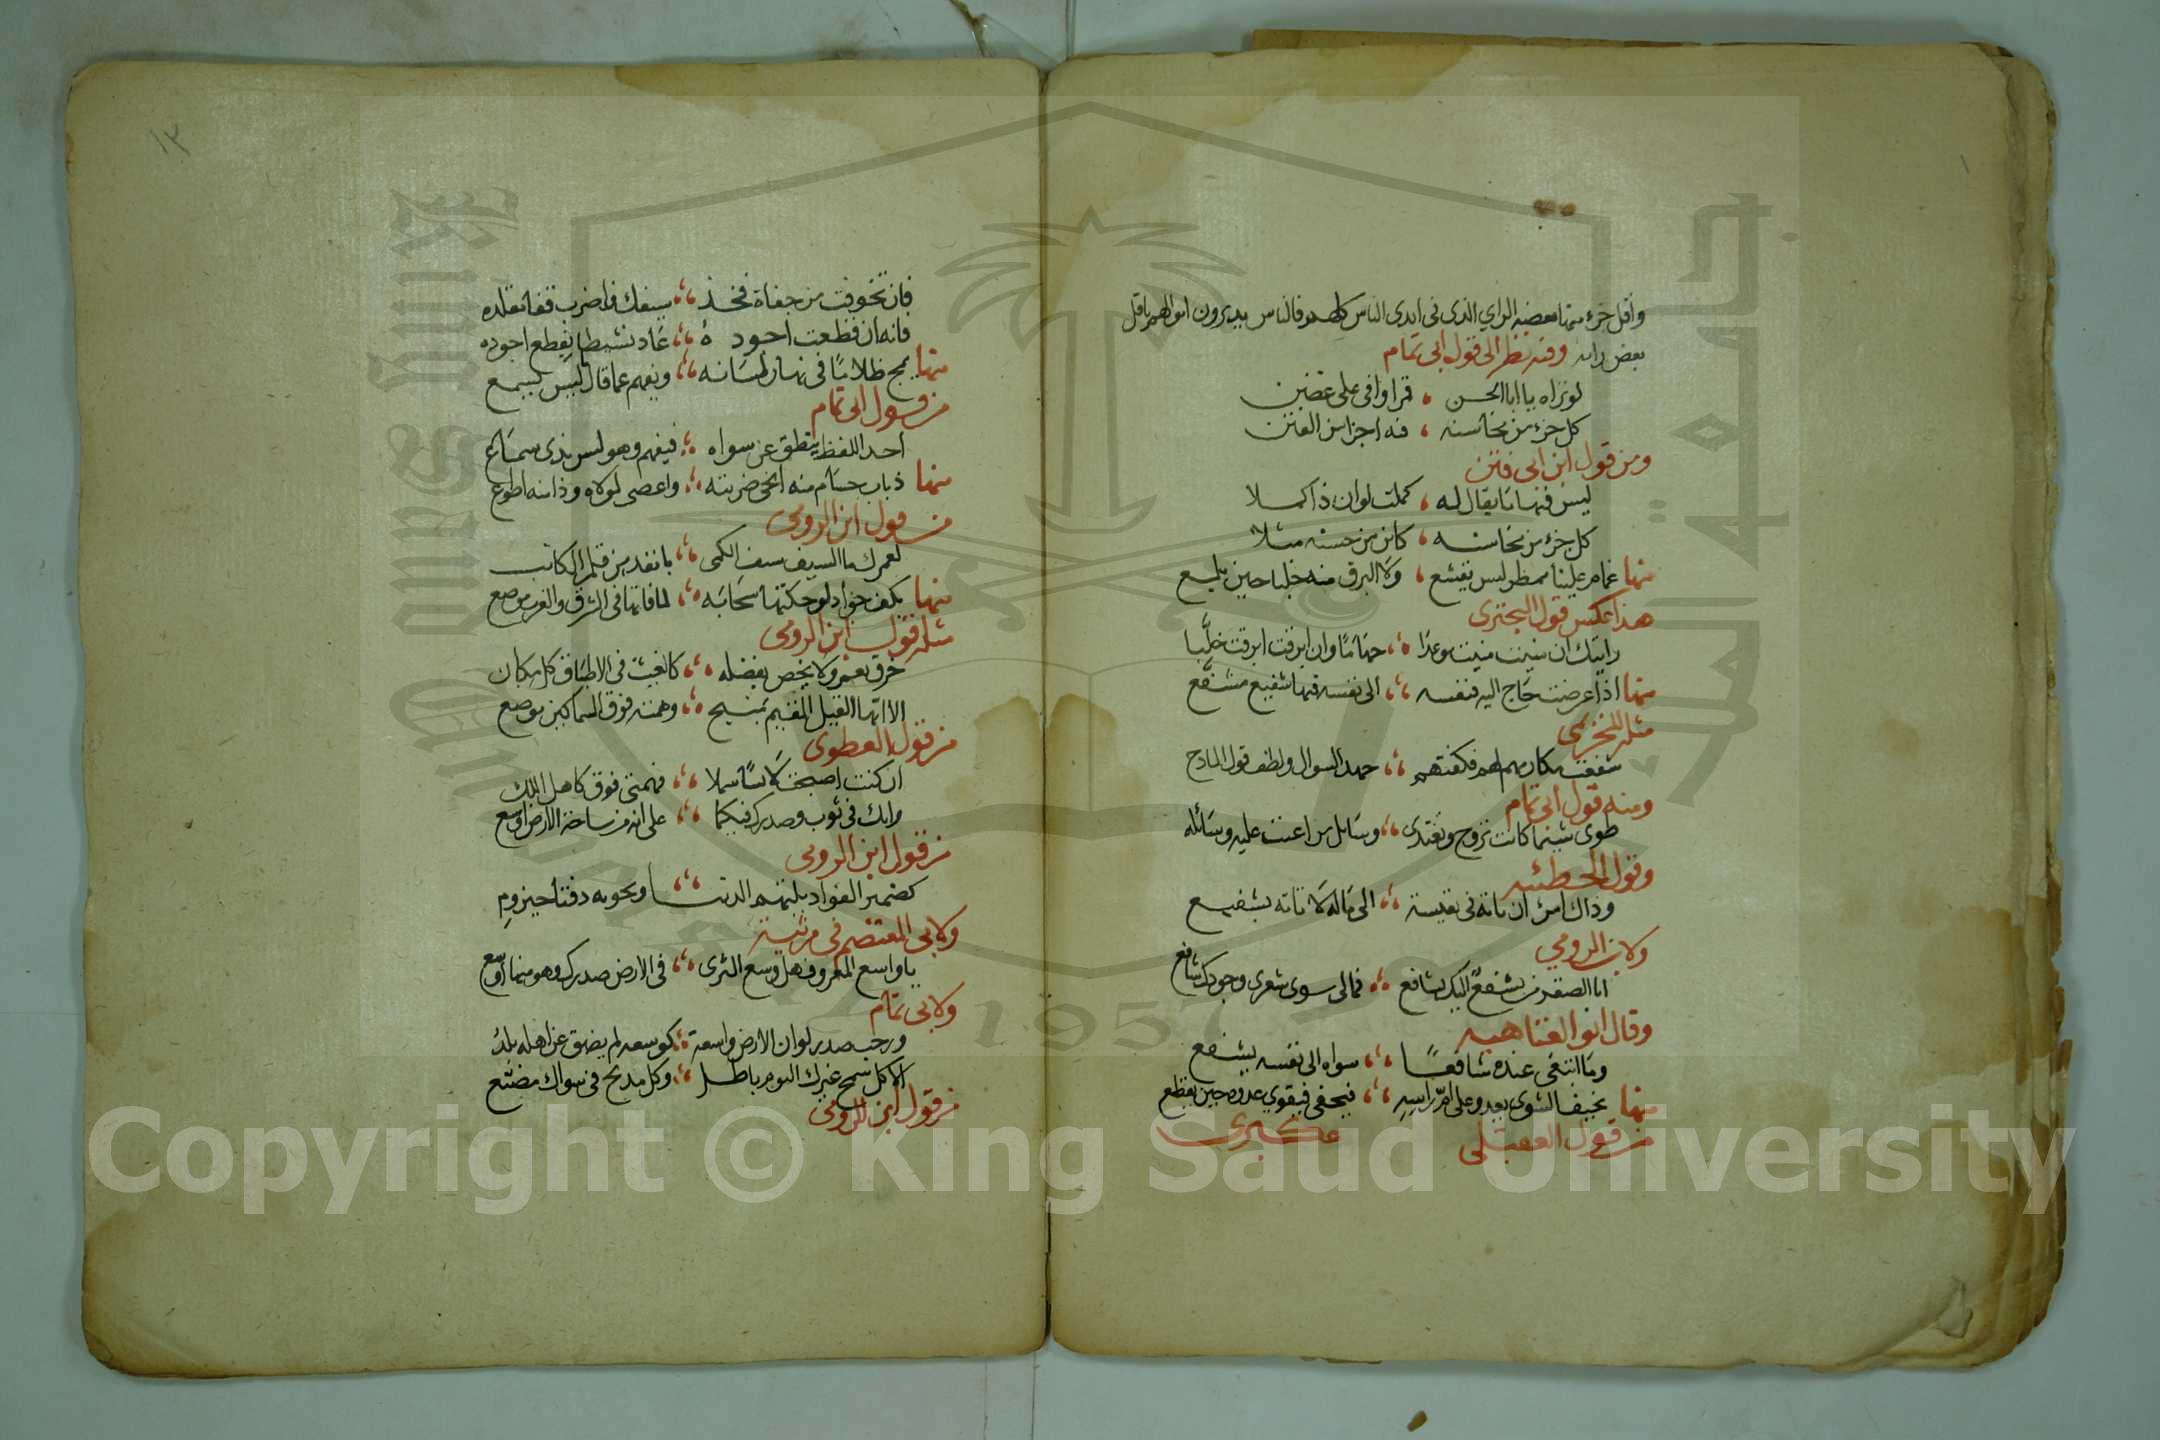 وأقل جزء منها بعضه الراي الذي في ايدي الناس كلهم فالناس يديرون امورهم باقل
بعض رايه وفيه نظر الى قول ابي تمام
لو تراه يا ابا الحسن ، قمرا وافى على غصن
كل جزء من محاسنه ، فيه اجزا من الفتن
ومن قول ابن ابي فنن
ليس فيها ما يقال له ، كملت لو ان ذا كملا
كل جزء من محاسنه ، كاين من حسنه مثلا
منها غمام علينا ممطر ليس يقشع ، ولا البرق منه خلبا حين يلمع
هذا عكس قول البحتري
رايتك ان منيت منيت موعدا ؛ جهاما وان ابرقت ابرقت خلبا
منها اذا عرضت حاج اليه فنفسه ؛ الى نفسه فيها شفيع مشفع
مثله للخزيمي
شفعت مكارمهم لهم فكفتهم ؛ جهد السوال ولطف قول المادح
ومنه قول ابي تمام
طوى شيما كانت تروح وتغتدي ؛ وسائل من اعيت عليه وسائله
وقول الحطئيه
وذاك امرؤ ان تاته في نفيسة ؛ الى ماله لا تاته بشفيع
ولابن الرومي
ابا الصقر من يشفع اليك بشافع ؛ فمالي سوى شعري وجودك شافع
وقال ابو العتاهيه
وما ابتغي عنده شافعا ؛ سواه الى نفسه يشفع
منها نحيف الشوى يعدو على ام راسه ؛ فيحفى فيقوي عدوه حين يقطع
من قول العقيلي عكبري
١٣
فان تخوفت من جفاة فخذ ؛ سيفك فاضرب قفا مقلده
فانه ان قطعت اجوده ؛ عاد نشيطا بقطع اجوده
منها يمج ظلاما في نهار لسانه ؛ ويفهم عما قال ليس يسمع
من قول ابي تمام
احد اللفظ ينطق عن سواه ؛ فيفهم وهو ليس بذي سماع
منها ذباب حسام منه انجى ضريبة ؛ واعصى لمولاه وذا منه اطوع
من قول ابن الرومي
لعمرك ما السيف سيف الكمي ؛ بانفذ من قلم الكاتب
منها بكف جواد لو حكتها سحابه ؛ لما فاتها في الشرق والغرب موضع
مثله قول ابن الرومي
خرق يعم ولا يخص بفضله ؛ كالغيث في الاطباق كل مكان
الا ايها القيل المقيم بمنبج ؛ وهمته فوق السماكين موضع
من قول العطوي
ان كنت اصبحت لابسا سملا ؛ فهمتي فوق كاهل الملك
وانك في ثوب وصدرك فيكما ؛ على انه من ساحة الارض اوسع
من قول ابن الرومي
كضمير الفواد يلتهم الدنيا وتحويه دفتا حيزوم
ولابي المعتصم في مرثية
يا واسع المعروف هل وسع الثرى ؛ في الارض صدرك وهو منها اوسع
ولابي تمام
ورحب صدر لو ان الارض واسعة ؛ كوسعه لم يضق عن اهله بلد
الا كل سمح غيرك اليوم باطل ؛ وكل مديح في سواك مضيع
من قول ابن الرومي
1957
Copyright © King Saud University